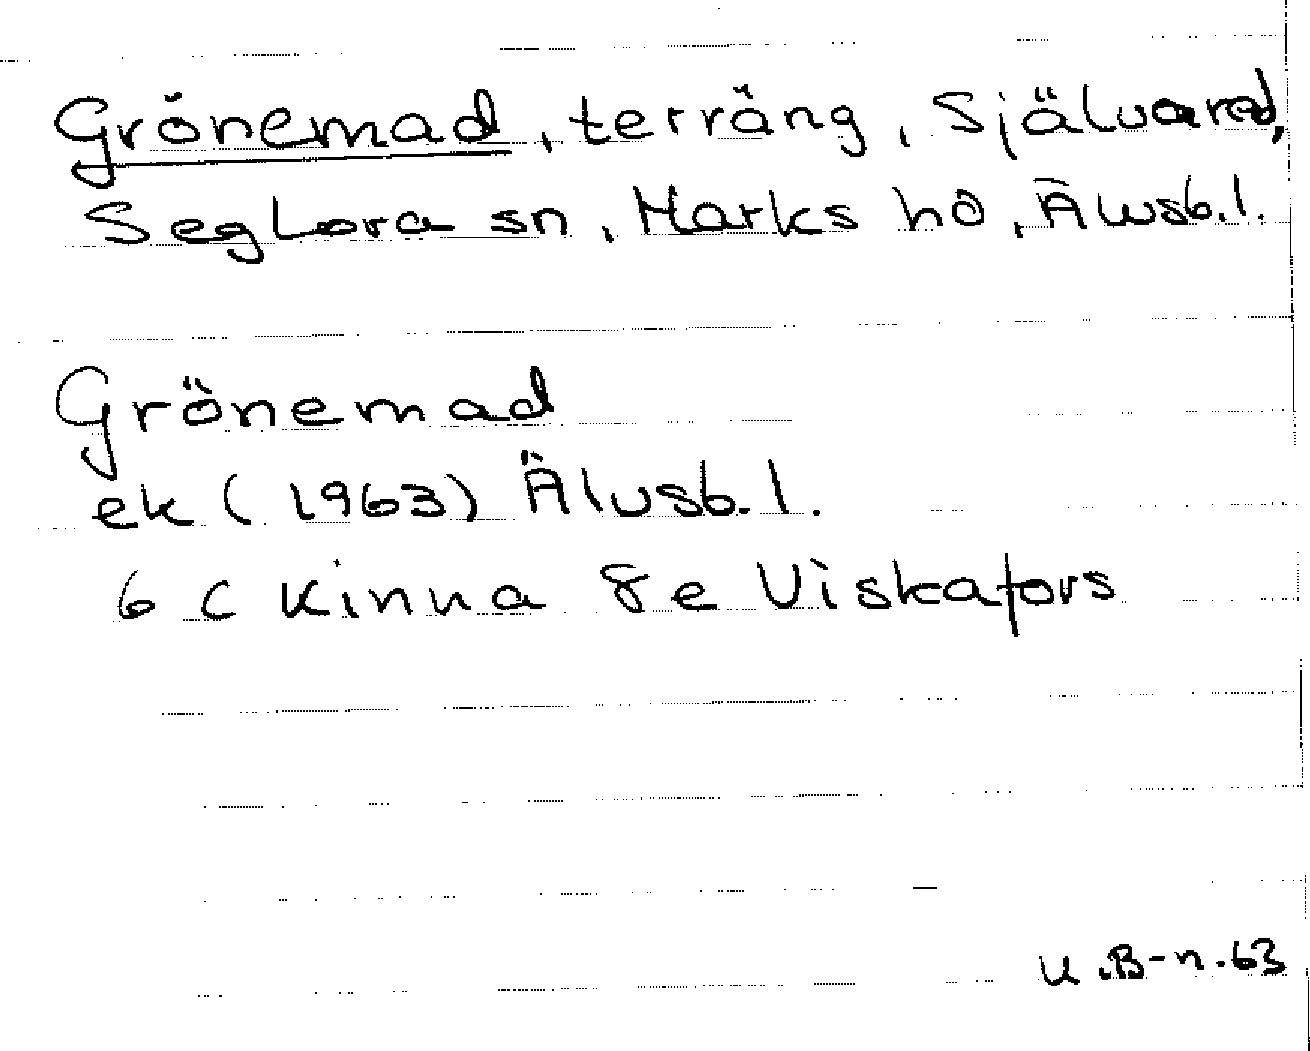 Grönemad, terräng, Självared,
Seglora sn, Marks hd, Älvsb.l.
Grönemad
ek (1963) Älvsb.l.
6 C Kinna 8e Viskafors
U.B-n.63